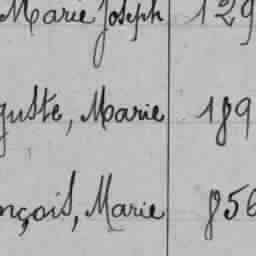 Marie Joseph 129
guste, Marie 189
nçois, Marie 856